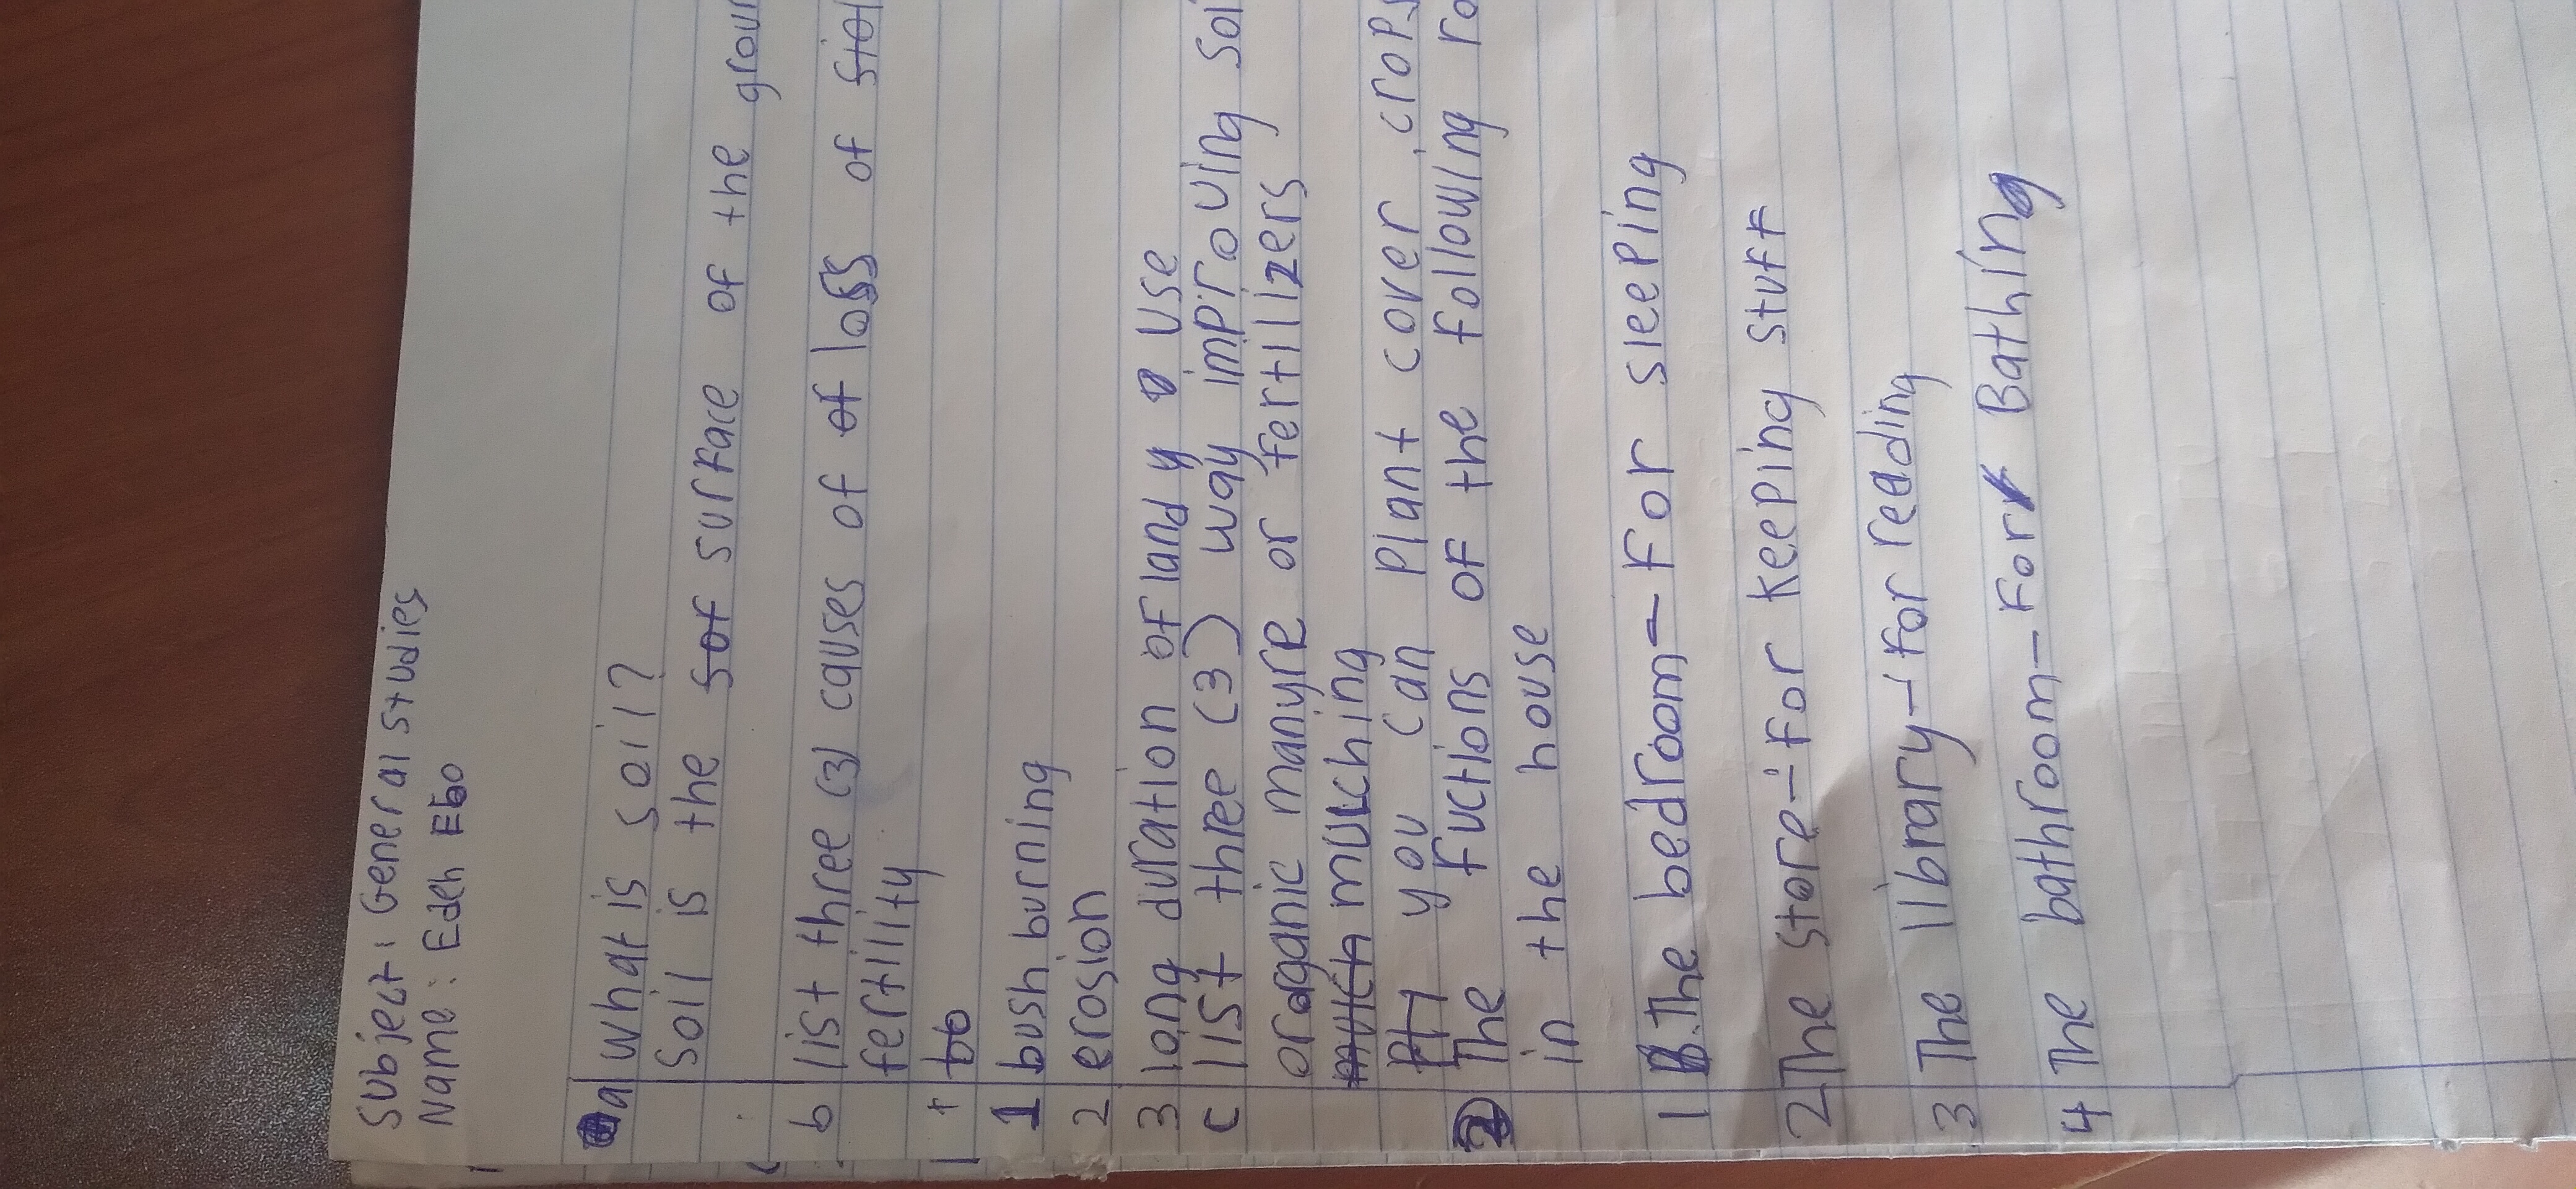 Subject: General studies
Name: Edeh Ebo
a what is soil?
soil is the sof surface of the groun
b list three (3) causes of of loss of siol
fertility
1 bush burning
2 erosion
3 long duration of land y use
c list three (3) way improving soi
oroganic manyre or fertilizers
much mulching
Pl you can Plant cover crops
2 The fuctions of the following ro
in the house
1 The bedroom - For sleeping
2 The store - for keeping stuff
3 The library - for reading
4 The bathroom - For Bathing